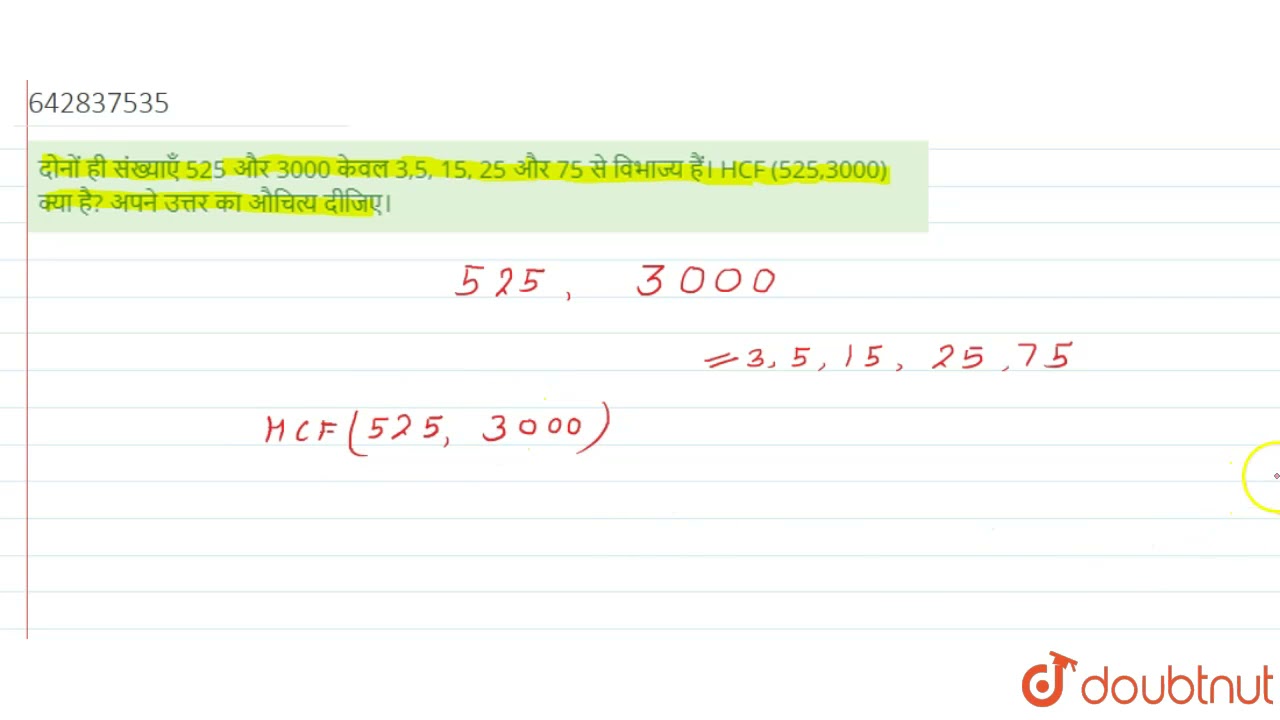 642837535
दोनों ही संख्याएँ 525 और 3000 केवल 3,5, 15, 25 और 75 से विभाज्य हैं। HCF (525,3000)
क्या है? अपने उत्तर का औचित्य दीजिए।
525, 3000
= 3, 5, 15, 25, 75
HCF(525, 3000)
doubtnut